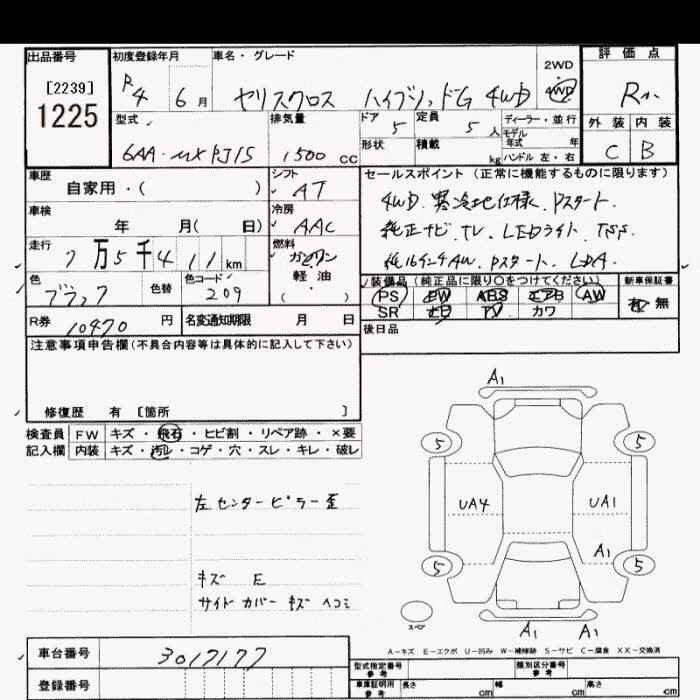 出品番号
[2239]
1225
初度登録年月
R4 6月
車名・グレード
ヤリスクロス ハイブリッドG 4WD
2WD
4WD
評価点
外装 内装
C B
型式
6AA-MXPJ15
排気量
1500cc
ドア 5
定員 5人
形状
積載 kg
ディーラー・並行
モデル年式 年
ハンドル 左・右
車歴
自家用・( )
車検
年 月( 日)
走行
7万5千411km
色
ブラック
色替
色コード
209
シフト
AT
冷房
AAC
燃料
ガソリン
軽・油
( ・ )
セールスポイント(正常に機能するものに限ります)
4WD. 寒冷地仕様. Pスタート.
純正ナビ. TV. LEDライト. TSS.
Pスタート. LDA.
装備品(純正品に限り〇をつけてください)
PS PW ABS エアB AW
SR レB TV カワ
新車保証書
有 無
後日品
R券 10470円
名変通知期限 月 日
注意事項申告欄(不具合内容等は具体的に記入して下さい)
修復歴 有 [箇所 ]
検査員 FW キズ・飛石・ヒビ割・リペア跡・×要
記入欄 内装 キズ・汚レ・コゲ・穴・スレ・キレ・破レ
左センターピラー歪
キズ E
サイドカバー キズ ヘコミ
A1
5 5
UA4 UA1
A1
5 5
スペア
A1 A1
A-キズ E-エクボ U-凹み W-補修跡 S-サビ C-腐食 XX-交換済
車台番号
3017177
登録番号
型式指定番号 参考
類別区分番号 参考
車庫証明用 参考
長さ cm 幅 cm 高さ cm